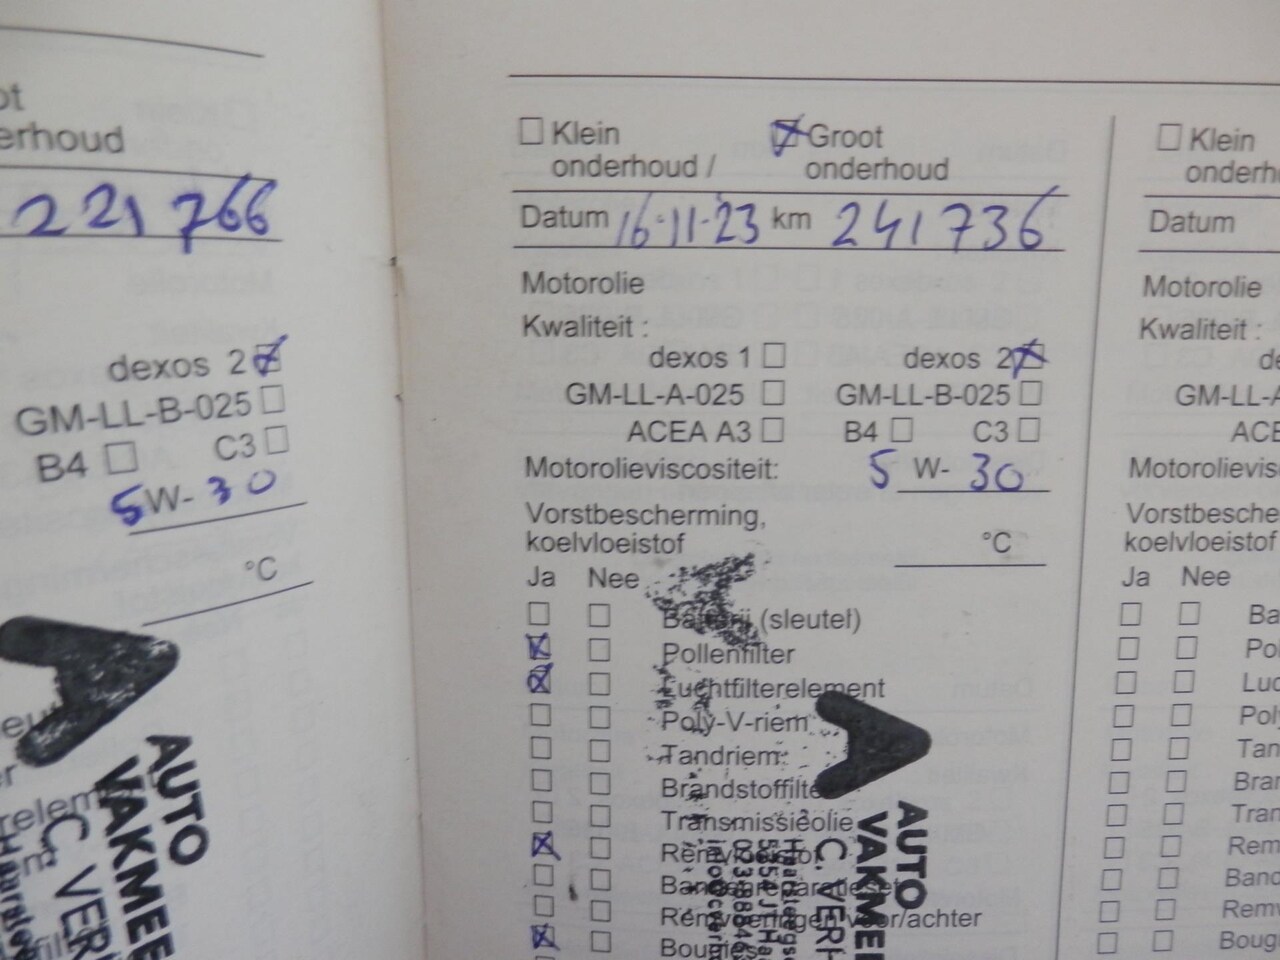 ot
erhoud
221766
dexos 2
GM-LL-B-025
B4 C3
5W-30
°C
AUTO
VAKMEE
C. VERI
Klein Groot
onderhoud / onderhoud
Datum 16-11-23 km 241736
Motorolie
Kwaliteit :
dexos 1 dexos 2
GM-LL-A-025 GM-LL-B-025
ACEA A3 B4 C3
Motorolieviscositeit: 5 W- 30
Vorstbescherming,
koelvloeistof °C
Ja Nee
Batterij (sleutel)
Pollenfilter
Luchtfilterelement
Poly-V-riem
Tandriem
Brandstoffilte
Transmissieolie
Remvloeistof
Bandenreparatieset
Remvoeringen voor/achter
Bougies
AUTO
VAKMEE
C. VERI
Klein
onderh
Datum
Motorolie
Kwaliteit :
de
GM-LL-A
ACE
Motorolievisc
Vorstbesche
koelvloeistof
Ja Nee
Ba
Po
Luc
Pol
Tan
Bra
Tran
Rem
Band
Remv
Boug